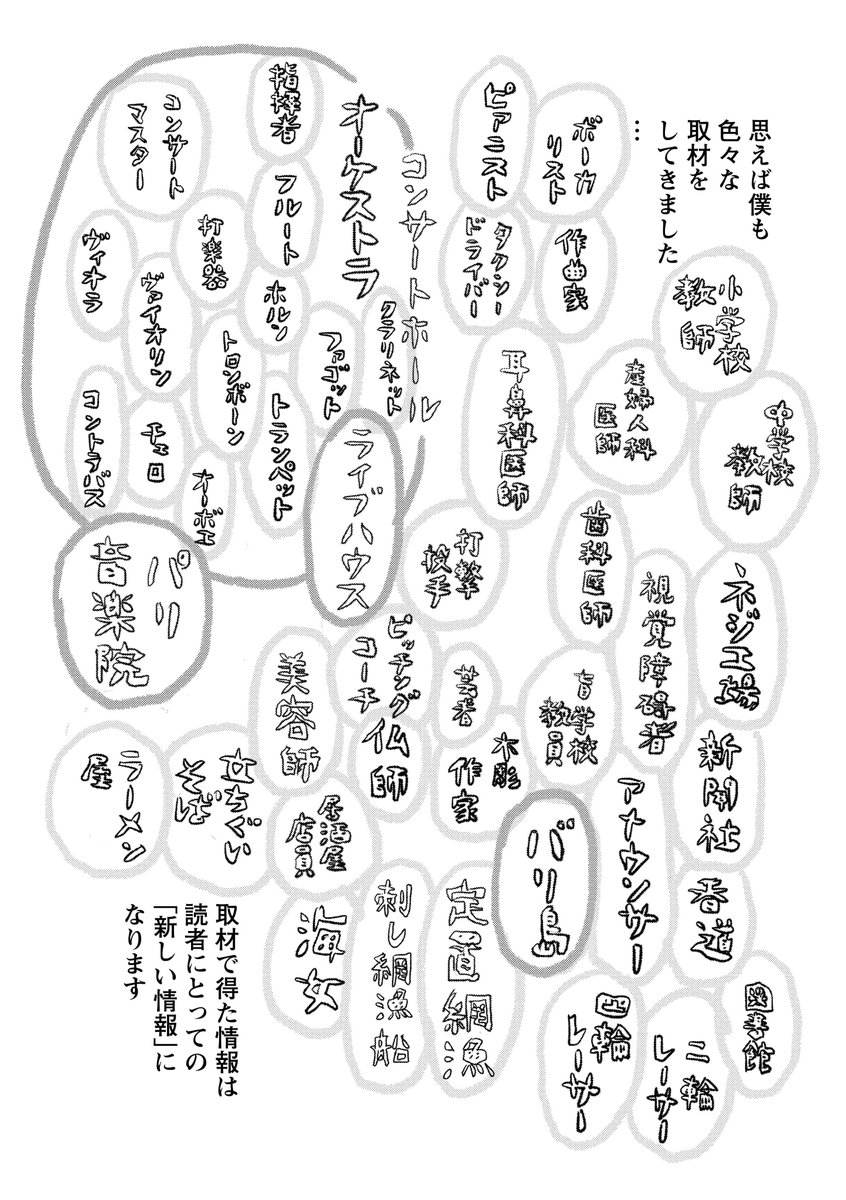 思えば僕も
色々な
取材を
してきました
…
小学校
教師
中学校
教師
ボーカ
リスト
ピアニスト
作曲家
タクシー
ドライバー
産婦人科
医師
耳鼻科医師
コンサートホール
オーケストラ
指揮者
コンサート
マスター
フルート
打楽器
ヴィオラ
ヴァイオリン
ホルン
クラリネット
ファゴット
トロンボーン
トランペット
チェロ
コントラバス
オーボエ
ライブハウス
パリ
音楽院
ネジ工場
視覚障碍者
歯科医師
打撃
投手
盲学校
教員
芸者
ピッチング
コーチ
美容師
新聞社
アナウンサー
木彫
作家
仏師
立ちぐい
そば
ラーメン
屋
居酒屋
店員
バリ島
香道
図書館
二輪
レーサー
四輪
レーサー
定置網漁
刺し網漁船
海女
取材で得た情報は
読者にとっての
「新しい情報」に
なります